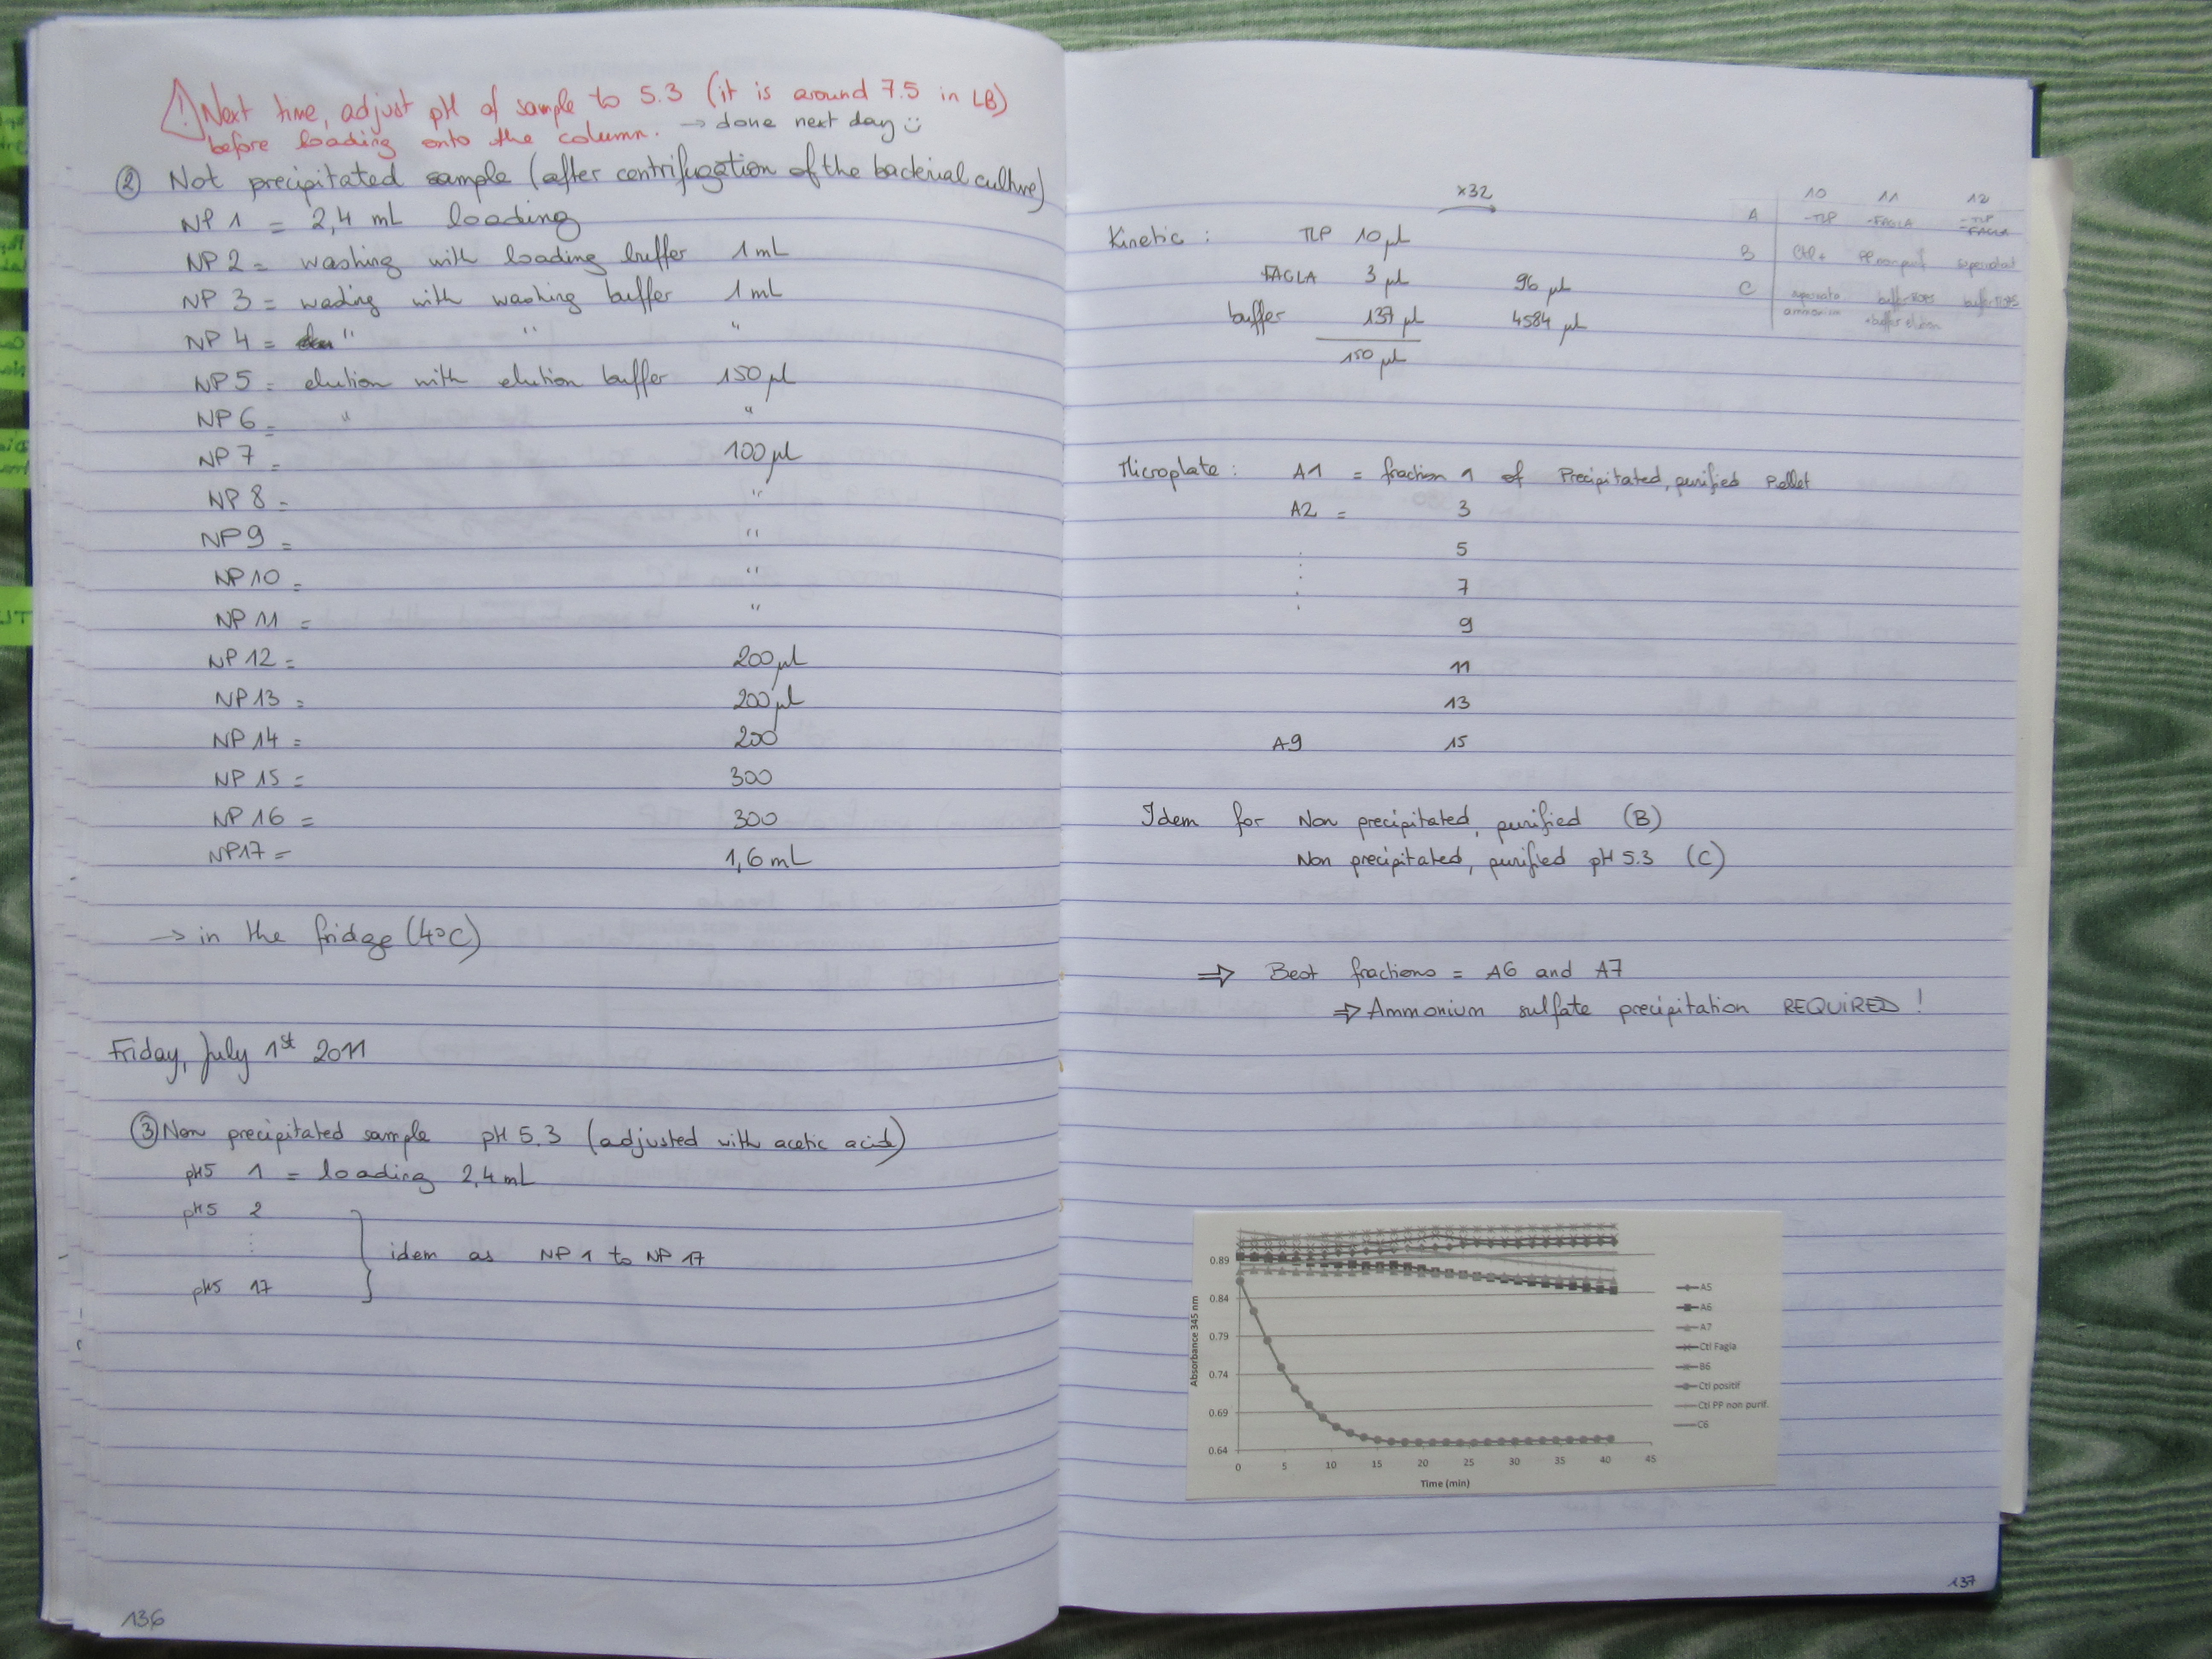 Next time, adjust pH of sample to 5.3 (it is around 7.5 in LB)
before loading onto the column. → done next day
② Not precipitated sample (after centrifugation of the bacterial culture)
NP 1 = 2,4 mL loading
NP 2 = washing with loading buffer 1 mL
NP 3 = wading with washing buffer 1 mL
NP 4 = " " "
NP 5 = elution with elution buffer 150 µL
NP 6 = " "
NP 7 = 100 µL
NP 8 = "
NP 9 = "
NP 10 = "
NP 11 = "
NP 12 = 200 µL
NP 13 = 200 µL
NP 14 = 200
NP 15 = 300
NP 16 = 300
NP 17 = 1,6 mL
→ in the fridge (4°C)
Friday, July 1st 2011
③ Non precipitated sample pH 5.3 (adjusted with acetic acid)
pH5 1 = loading 2,4 mL
pH5 2
idem as NP 1 to NP 17
pH5 17
136
x32
Kinetic : TLP 10 µL
FAGLA 3 µL 96 µL
buffer 137 µL 4584 µL
150 µL
10 11 12
A -TLP -FAGLA -TLP -FAGLA
B Ctl + PP non purif supernatant
C ammonium buffer elution
Microplate : A1 = fraction 1 of Precipitated, purified Pellet
A2 = 3
5
7
9
11
13
A9 15
Idem for Non precipitated, purified (B)
Non precipitated, purified pH 5.3 (C)
⇒ Best fractions = A6 and A7
⇒ Ammonium sulfate precipitation REQUIRED !
Absorbance 345 nm
0.89
0.84
0.79
0.74
0.69
0.64
0 5 10 15 20 25 30 35 40 45
Time (min)
A5
A6
A7
Ctl Fagla
B6
Ctl positif
Ctl PP non purif.
C6
137